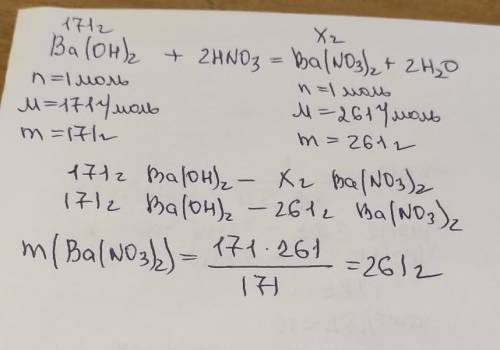 171г                              Xг
Ba(OH)₂ + 2HNO₃ = Ba(NO₃)₂ + 2H₂O
n=1моль                    n=1моль
M=171г/моль             M=261г/моль
m=171г                      m=261г
171г Ba(OH)₂ – Xг Ba(NO₃)₂
171г Ba(OH)₂ – 261г Ba(NO₃)₂
m(Ba(NO₃)₂) = 171·261 / 171 = 261г